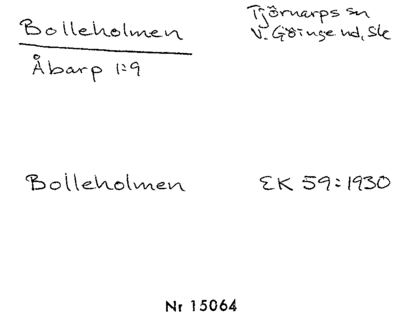 Bolleholmen
Tjörnarps sn
V. Göinge hd, Sk
Åbarp 1:9
Bolleholmen
EK 59:1930
Nr 15064